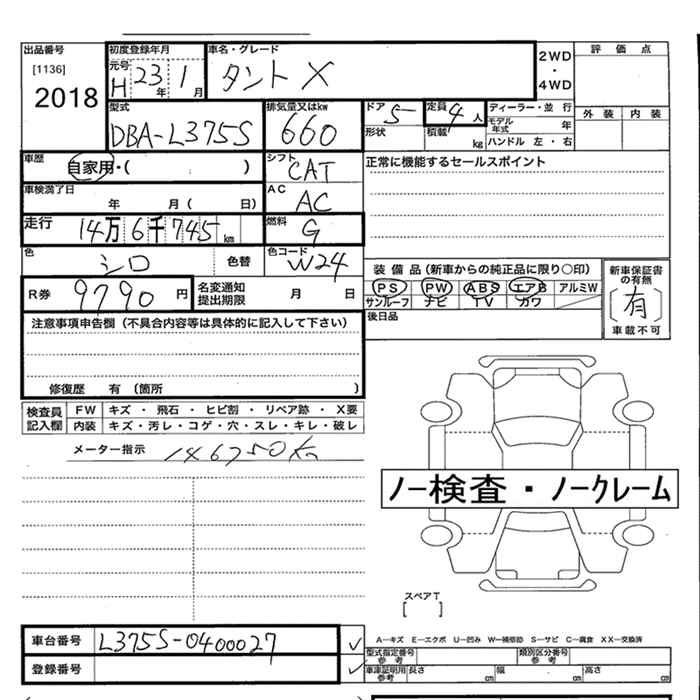 出品番号 初度登録年月 車名・グレード 2WD・4WD 評価点
[1136] 元号 H 23年 1月 タント X
2018
型式 排気量又はkw ドア 5 定員 4人 ディーラー・並行 外装 内装
DBA-L375S 660 形状 積載 kg モデル年式 年
ハンドル 左・右
車歴 自家用・( ) シフト CAT 正常に機能するセールスポイント
車検満了日 年 月( 日) AC AC
走行 14万6千745km 燃料 G
色 シロ 色替 色コード W24
装備品(新車からの純正品に限り○印) 新車保証書の有無
R券 9790円 名変通知提出期限 月 日 PS PW ABS エアB アルミW 〔有〕
サンルーフ ナビ TV カワ 車載不可
注意事項申告欄(不具合内容等は具体的に記入して下さい) 後日品
修復歴 有(箇所 )
検査員記入欄 FW キズ・飛石・ヒビ割・リペア跡・X要
内装 キズ・汚レ・コゲ・穴・スレ・キレ・破レ
メーター指示 146750K
ノー検査・ノークレーム
スペアT
[ ]
車台番号 L375S-0400027 ✓ A―キズ E―エクボ U―凹み W―補修跡 S―サビ C―腐食 XX―交換済
型式指定番号 参考 類別区分番号 参考
登録番号 ✓ 車庫証明用 参考 長さ cm 幅 cm 高さ cm